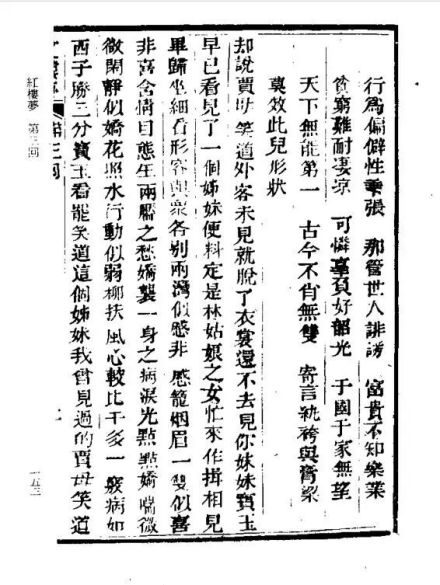 行爲偏僻性乖張　那管世人誹謗　富貴不知樂業
貧窮難耐凄凉　可憐辜負好韶光　于國于家無望
天下無能第一　古今不肖無雙　寄言紈袴與膏粱
莫效此兒形狀
却說賈母笑道外客未見就脫了衣裳還不去見你妹妹寶玉
早已看見了一個姊妹便料定是林姑娘之女忙來作揖相見
畢歸坐細看形容與衆各別兩灣似蹙非蹙籠烟眉一雙似喜
非喜含情目態生兩靨之愁嬌襲一身之病淚光點點嬌喘微
微閑靜似嬌花照水行動似弱柳扶風心較比干多一竅病如
西子勝三分寶玉看罷笑道這個姊妹我曾見過的賈母笑道
第三回
紅樓夢　第三回
一五三